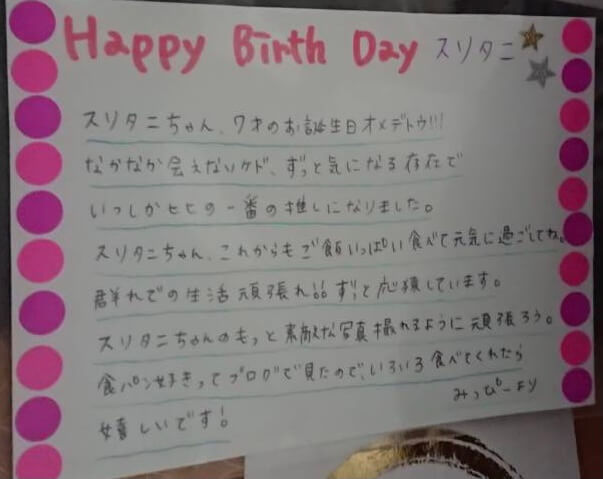 Happy Birth Day スリタニ
スリタニちゃん、7才のお誕生日オメデトウ!!!
なかなか会えないケド、ずっと気になる存在で
いつしかヒヒの一番の推しになりました。
スリタニちゃん、これからもご飯いっぱい食べて元気に過ごしてね。
群れでの生活頑張れ!! ずっと応援しています。
スリタニちゃんのもっと素敵な写真撮れるように頑張ろう。
食パン好きってブログで見たので、いろいろ食べてくれたら
嬉しいです!
みっぴーより